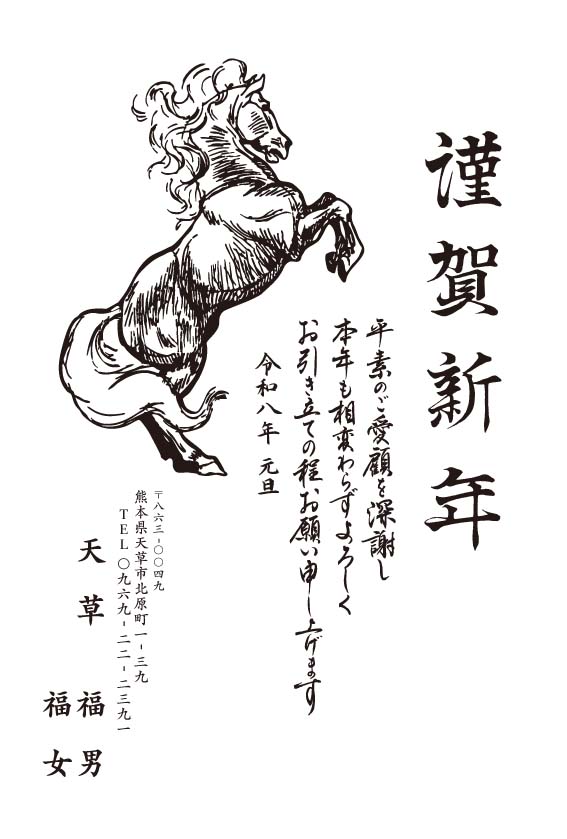 謹賀新年
平素のご愛顧を深謝し
本年も相変わらずよろしく
お引き立ての程お願い申し上げます
令和八年 元旦
〒八六三-〇〇四九
熊本県天草市北原町一-三九
TEL〇九六九-二二-二三九一
天草 福男
福女